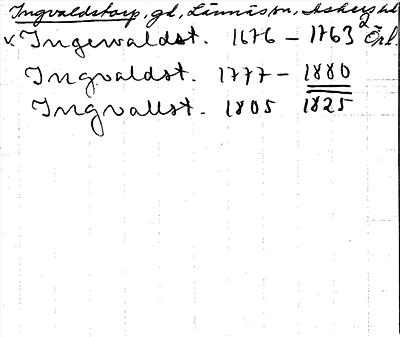 Ingvaldstorp, gd, Lännäs sn, Askers hd
v Ingewaldst. 1676 – 1763 Örl.
Ingvaldst. 1777 – 1880
Ingvallst. 1805 1825